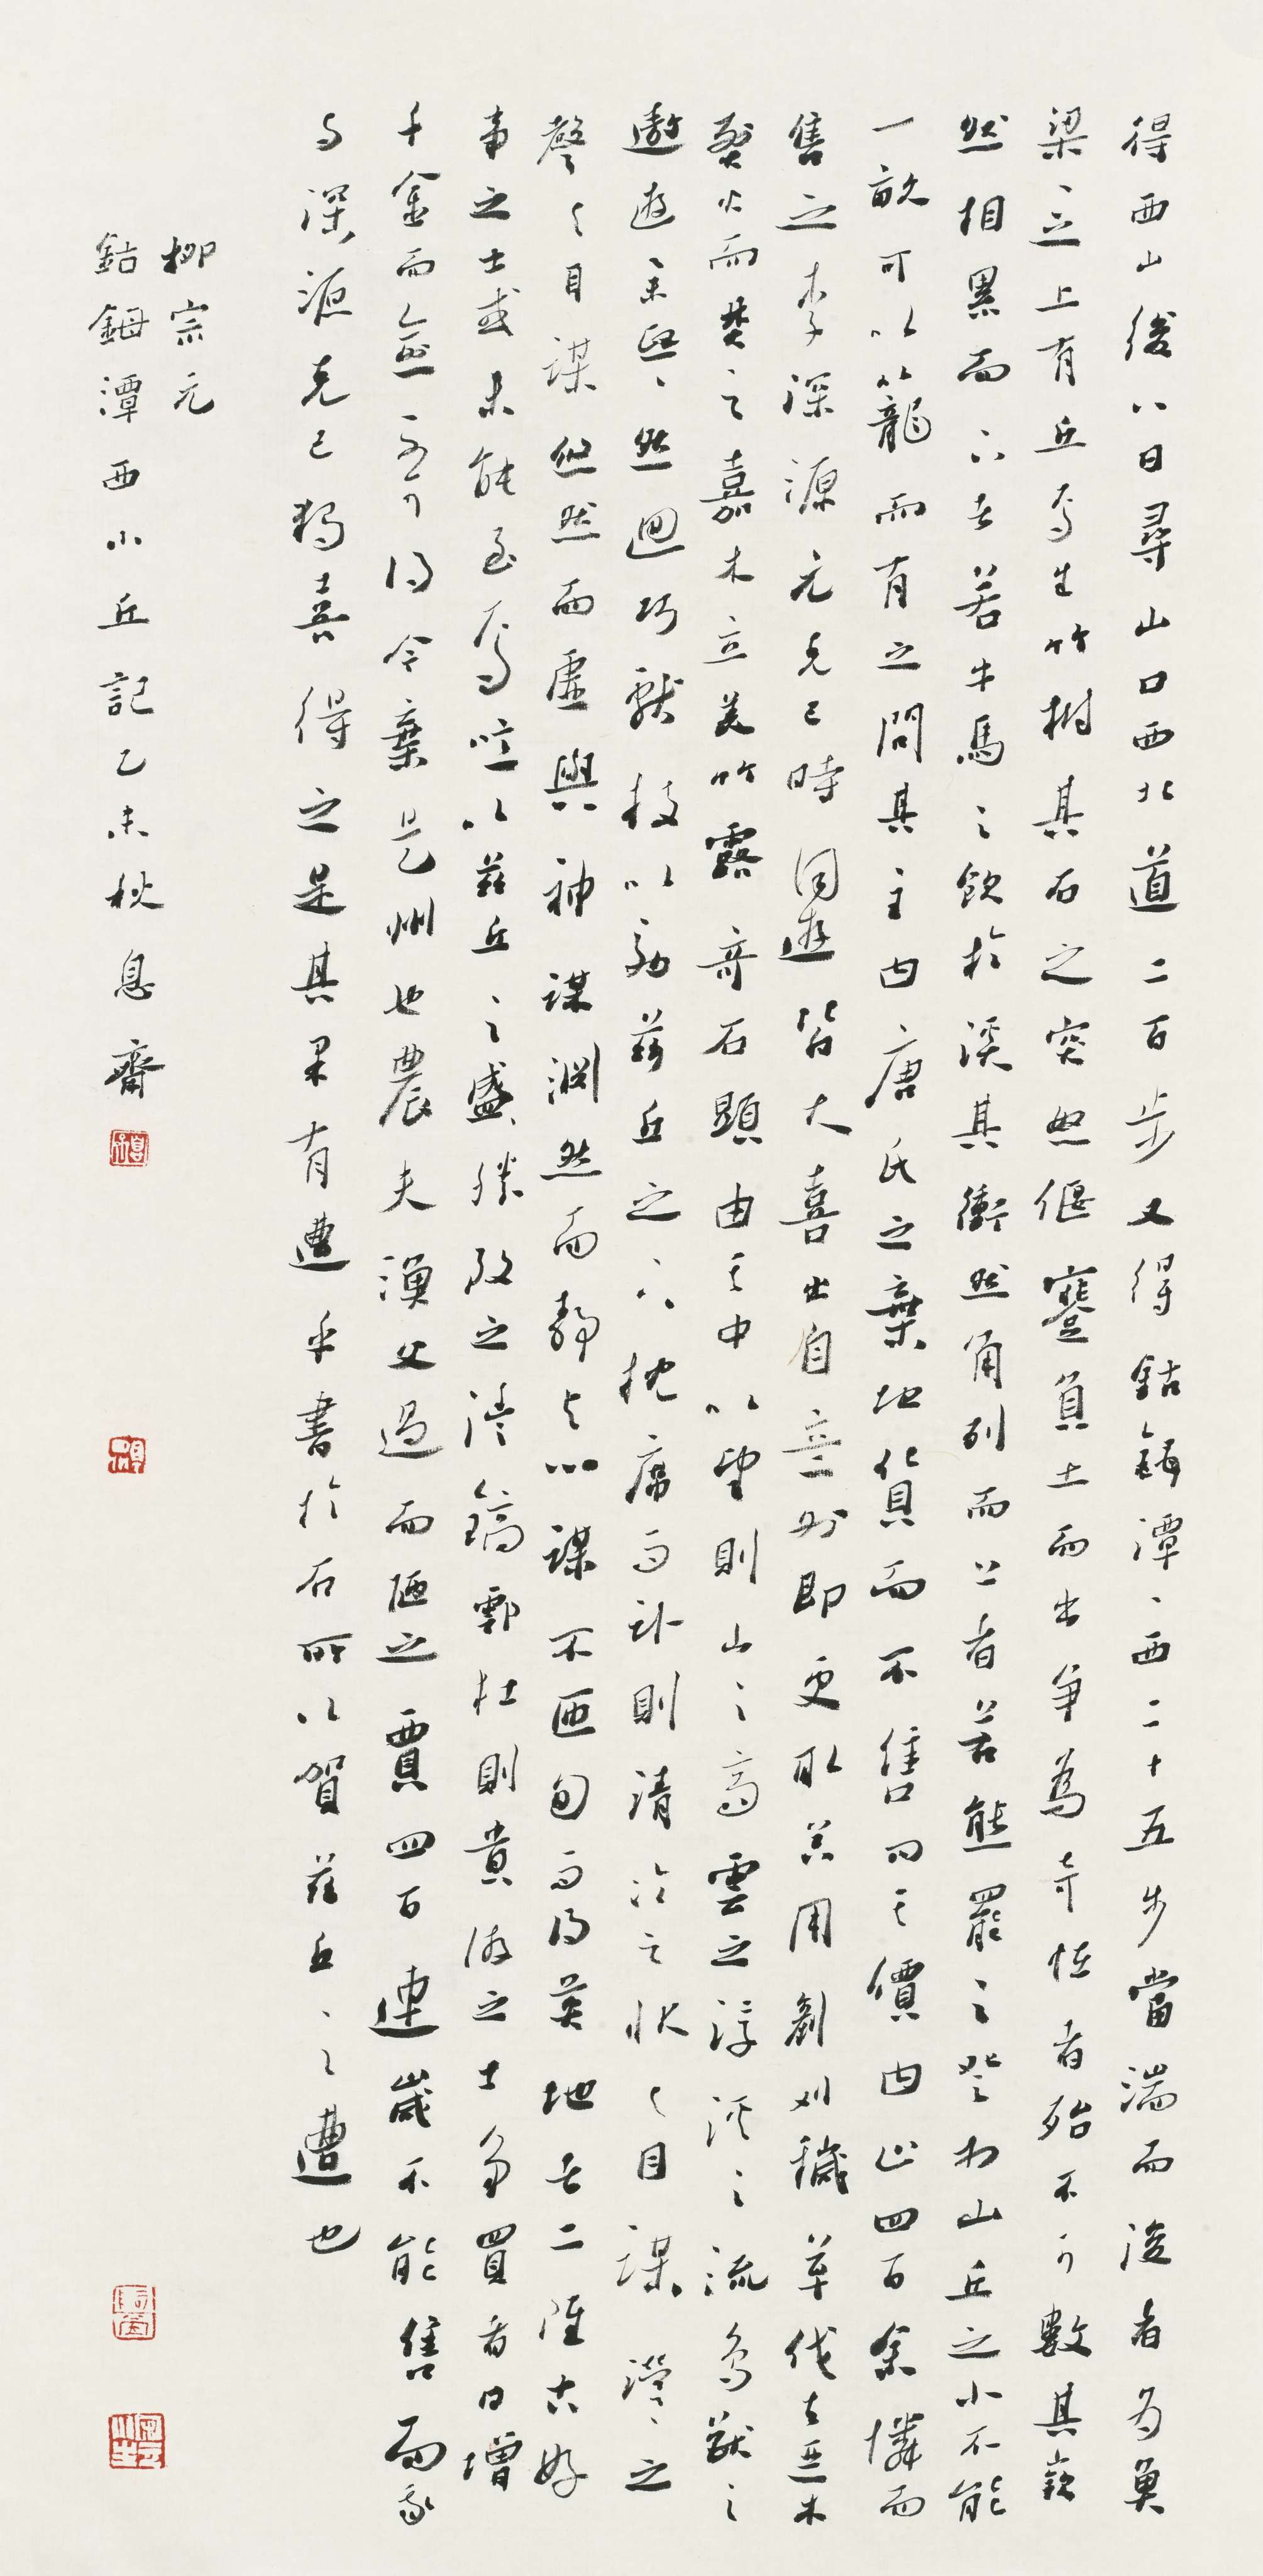 得西山後八日尋山口西北道二百步又得鈷鉧潭、西二十五步當湍而浚者為魚
梁、之上有丘焉生竹樹其石之突怒偃蹇負土而出爭為奇怪者殆不可數其嶔
然相累而下者若牛馬之飲於溪其衝然角列而上者若熊羆之登於山丘之小不能
一畝可以籠而有之問其主曰唐氏之棄地貨而不售問其價曰止四百余憐而
售之李深源元克己時同遊皆大喜出自意外即更取器用剷刈穢草伐去惡木
烈火而焚之嘉木立美竹露奇石顯由其中以望則山之高雲之浮溪之流鳥獸之
遨遊舉熙、然迴巧獻技以効茲丘之下枕席而臥則清泠之狀與目謀瀯、之
聲與耳謀悠然而虛與神謀淵然而靜與心謀不匝旬而得異地者二雖古好
事之士或未能至焉噫以茲丘之勝致之灃鎬鄠杜則貴游之士爭買者日增
千金而愈不可得今棄是州也農夫漁父過而陋之賈四百連歲不能售而我
與深源克己獨喜得之是其果有遭乎書於石所以賀茲丘、之遭也
柳宗元
鈷鉧潭西小丘記乙未秋息齋